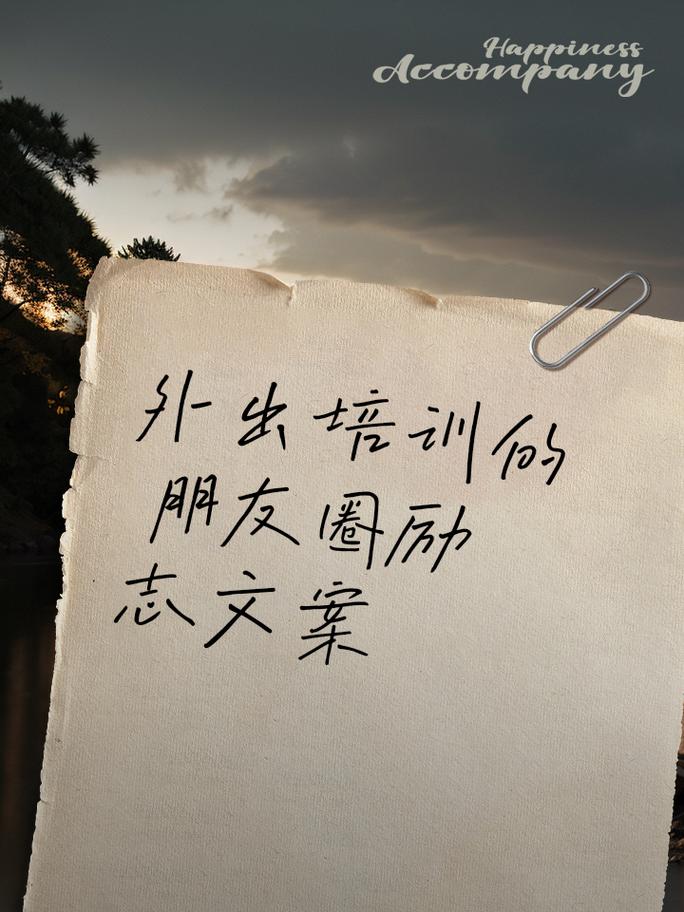 Happiness
Accompany
外出培训的
朋友圈励
志文案